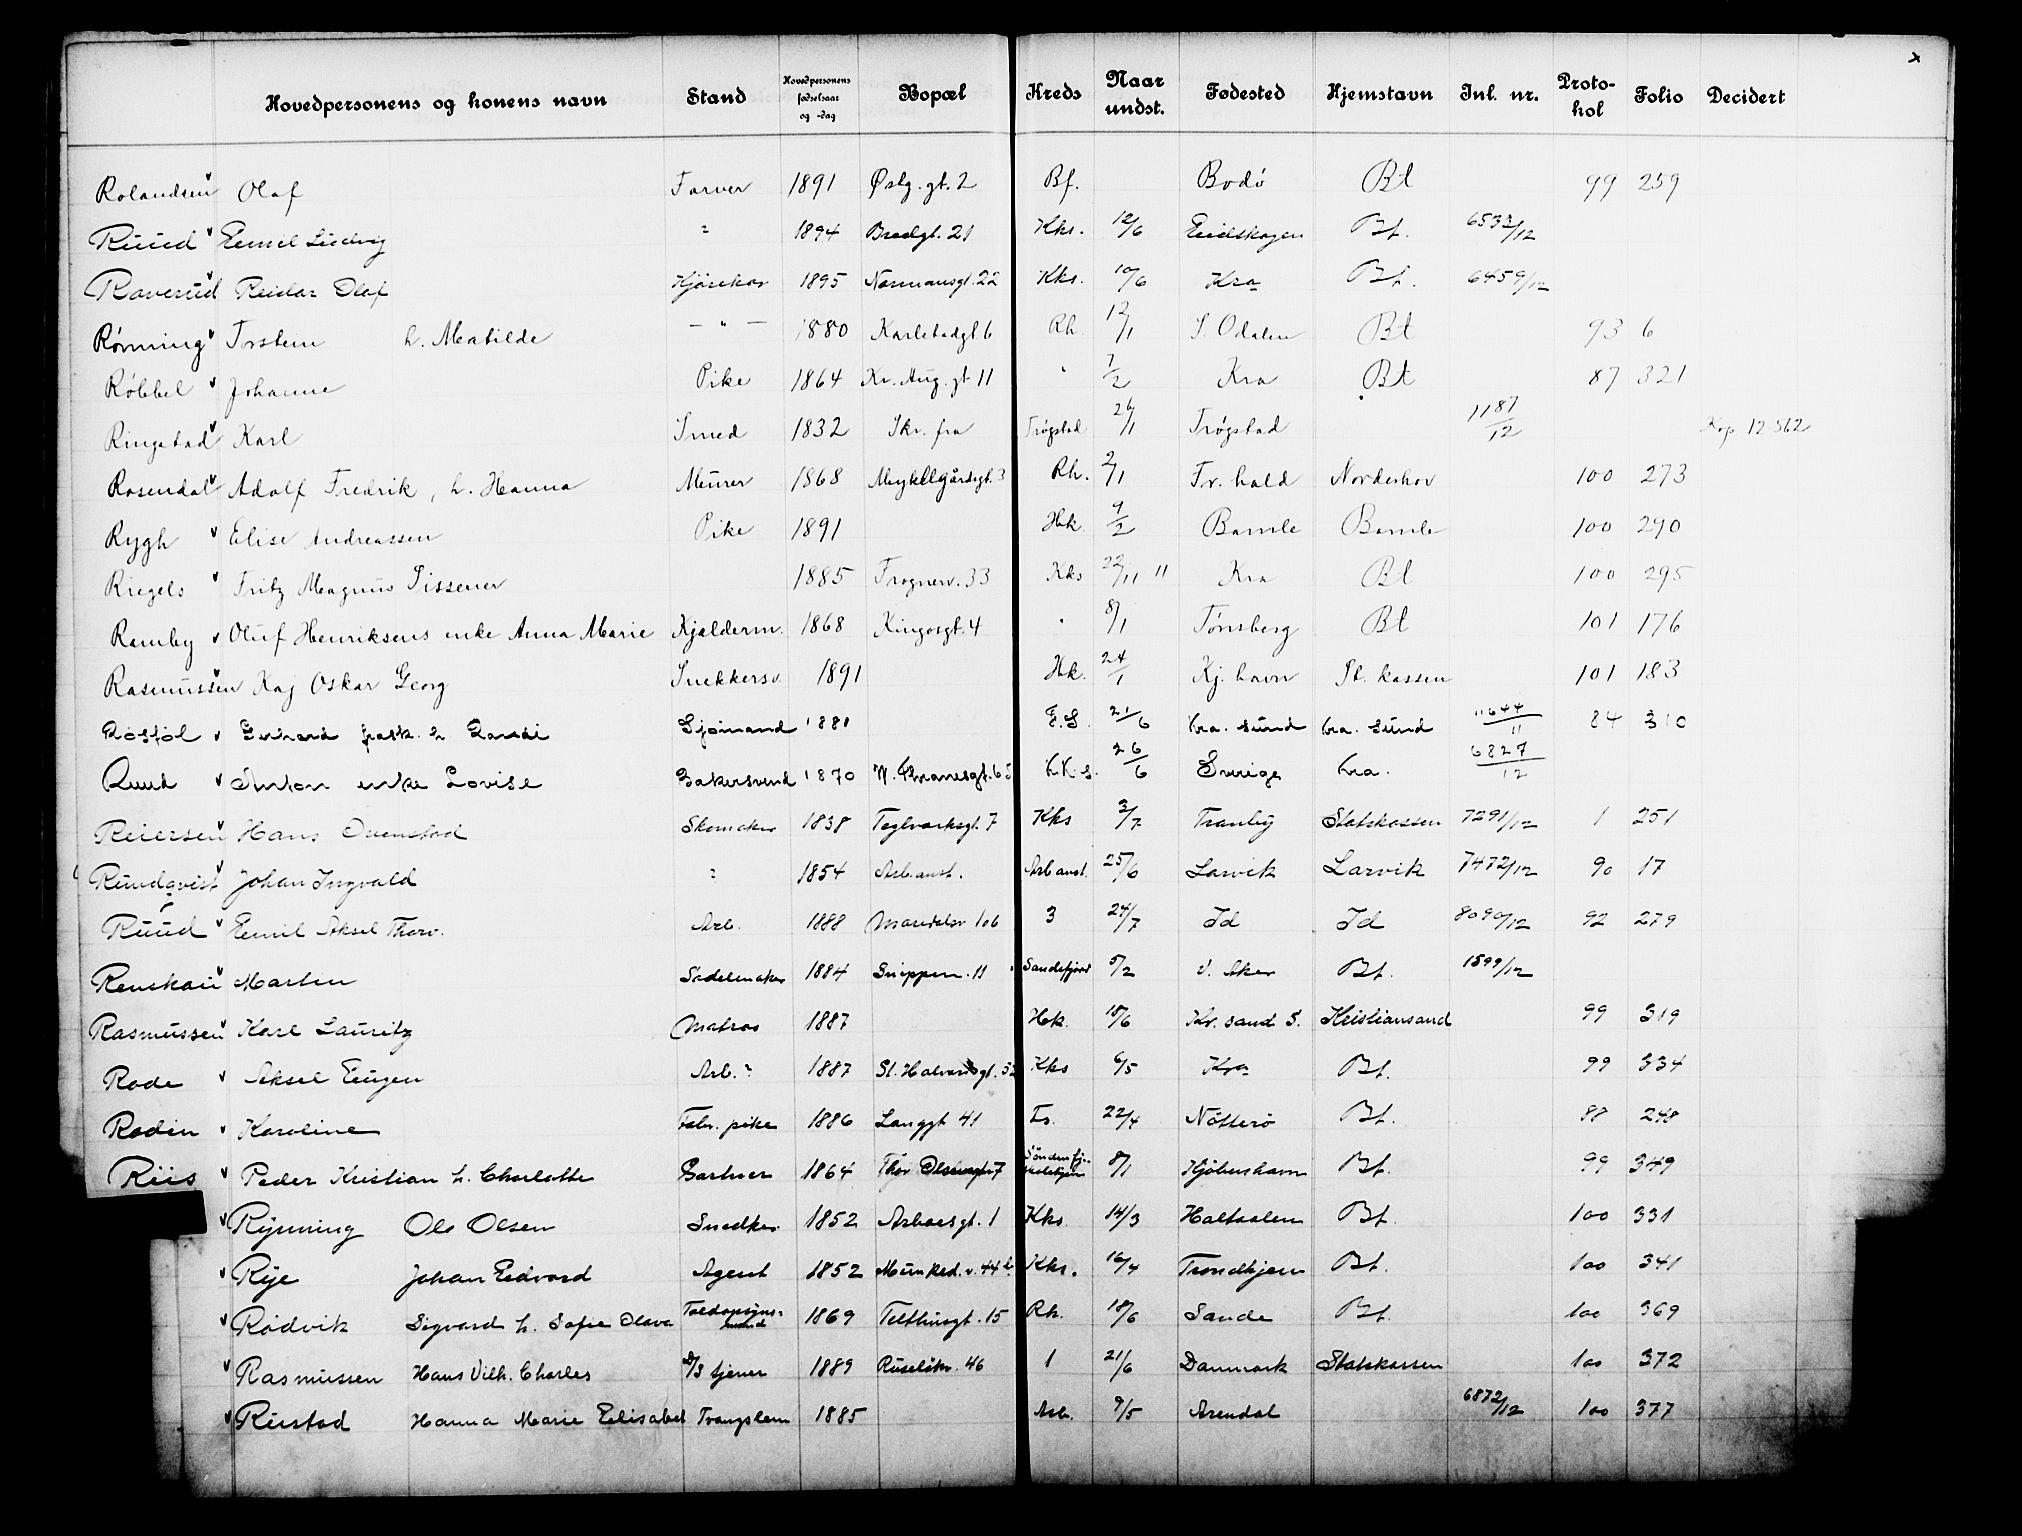 x
Hovedpersonens og konens navn Stand Hovedpersonens fødselsaar og -dag Bopæl Kreds Naar undst. Fødested Hjemstavn Inl. nr. Proto-kol Folio Decidert
Rolandsen Olaf Farver 1891 Østg. gt. 2 Bf. Bodø Bt 99 259
Ruud Emil Ludvig " 1894 Bredgt. 21 Kks. 12/6 Eidskogen Bf. 6533/12
Raverud Reidar Olaf Kjørekar 1895 Normansgt. 22 Kks. 10/6 Kra Bf. 6459/12
Rønning Torstein h. Matilde — " — 1880 Karlstadgt 6 Rh. 12/1 S. Odalen Bt 93 6
Røbbel Johanne Pike 1864 Kr. Aug. gt 11 " 7/2 Kra Bt 87 321
Ringstad Karl Smed 1832 Skr. fra Trøgstad 26/1 Trøgstad 1187/12 Kop 12-562
Rosendal Adolf Fredrik, h. Hanna Murer 1868 Meyhllgårdsgt. 3 Rh. 2/1 Fr. hald Norderhov 100 273
Rygh Elise Andreassen Pike 1891 Hk. 9/2 Bamle Bamle 100 290
Riegels Fritz Magnus Tissener 1885 Frognerv. 33 Kks 22/11 11 Kra Bt 100 295
Ramby Oluf Henriksens enke Anna Marie Kjelderm. 1868 Kingosgt. 4 " 8/1 Tønsberg Bt 101 176
Rasmussen Kaj Oskar Georg Snekkersv. 1891 Hk. 24/1 Kj. havn St. kassen 101 183
Røstøl frask. h. Sjømand 1881 F.S. 21/6 Kra. sund Kra. sund 11644/11 84 310
Ruud Anton enke Lovise Bakersvend 1870 W. Thranesgt. 65 26/6 Sverige Kra. 6827/12
Reiersen Hans Ovenstad Skomaker 1838 Teglverksgt. 7 Kks 3/7 Tranby Statskassen 7291/12 1 251
Rundqvist Johan Ingvald " 1854 Arb.anst. Arb anst. 25/6 Larvik Larvik 7472/12 90 17
Ruud Emil Aksel Thorv. Arb. 1888 Maridalsv 106 3 24/7 Id Id 8090/12 92 279
Renskau Martin Sadelmaker 1884 Snippen. 11 Sandefjord 5/2 V. Aker Bf. 1599/12
Rasmussen Karl Lauritz Matros 1887 Hek. 18/6 Kr. sand S. Kristiansand 99 319
Rode Aksel Eugen Arb. " 1887 St. Halvardsgt. 52 Kks 6/5 Kra Bf. 99 334
Rodin Karoline Fabr. pike 1886 Langgt 41 Fs. 22/4 Nøtterø Bf. 88 248
Riis Peder Kristian h. Charlotte Gartner 1864 Thor Olsensgt 7 8/1 Kjøbenhavn Bf. 99 349
Rynning Ole Olsen Snedker 1852 Arboesgt. 1 Kks. 14/3 Haltaalen Bf. 100 331
Rye Johan Edvard Agent 1852 Munked. v. 44 b. Kks. 16/4 Trondhjem Bf. 100 341
Rødvik Sigvard h. Sofie Olava Toldopsyns-mand 1869 Telthusgt. 15 Rh. 18/6 Sande Bf. 100 369
Rasmussen Hans Vilh. Charles D/S tjener 1889 Ruseløkv. 46 1 21/6 Danmark Statskassen 100 372
Rustad Hanna Marie Elisabet Tvangslem 1885 Arb. 9/5 Arendal 6872/12 100 377